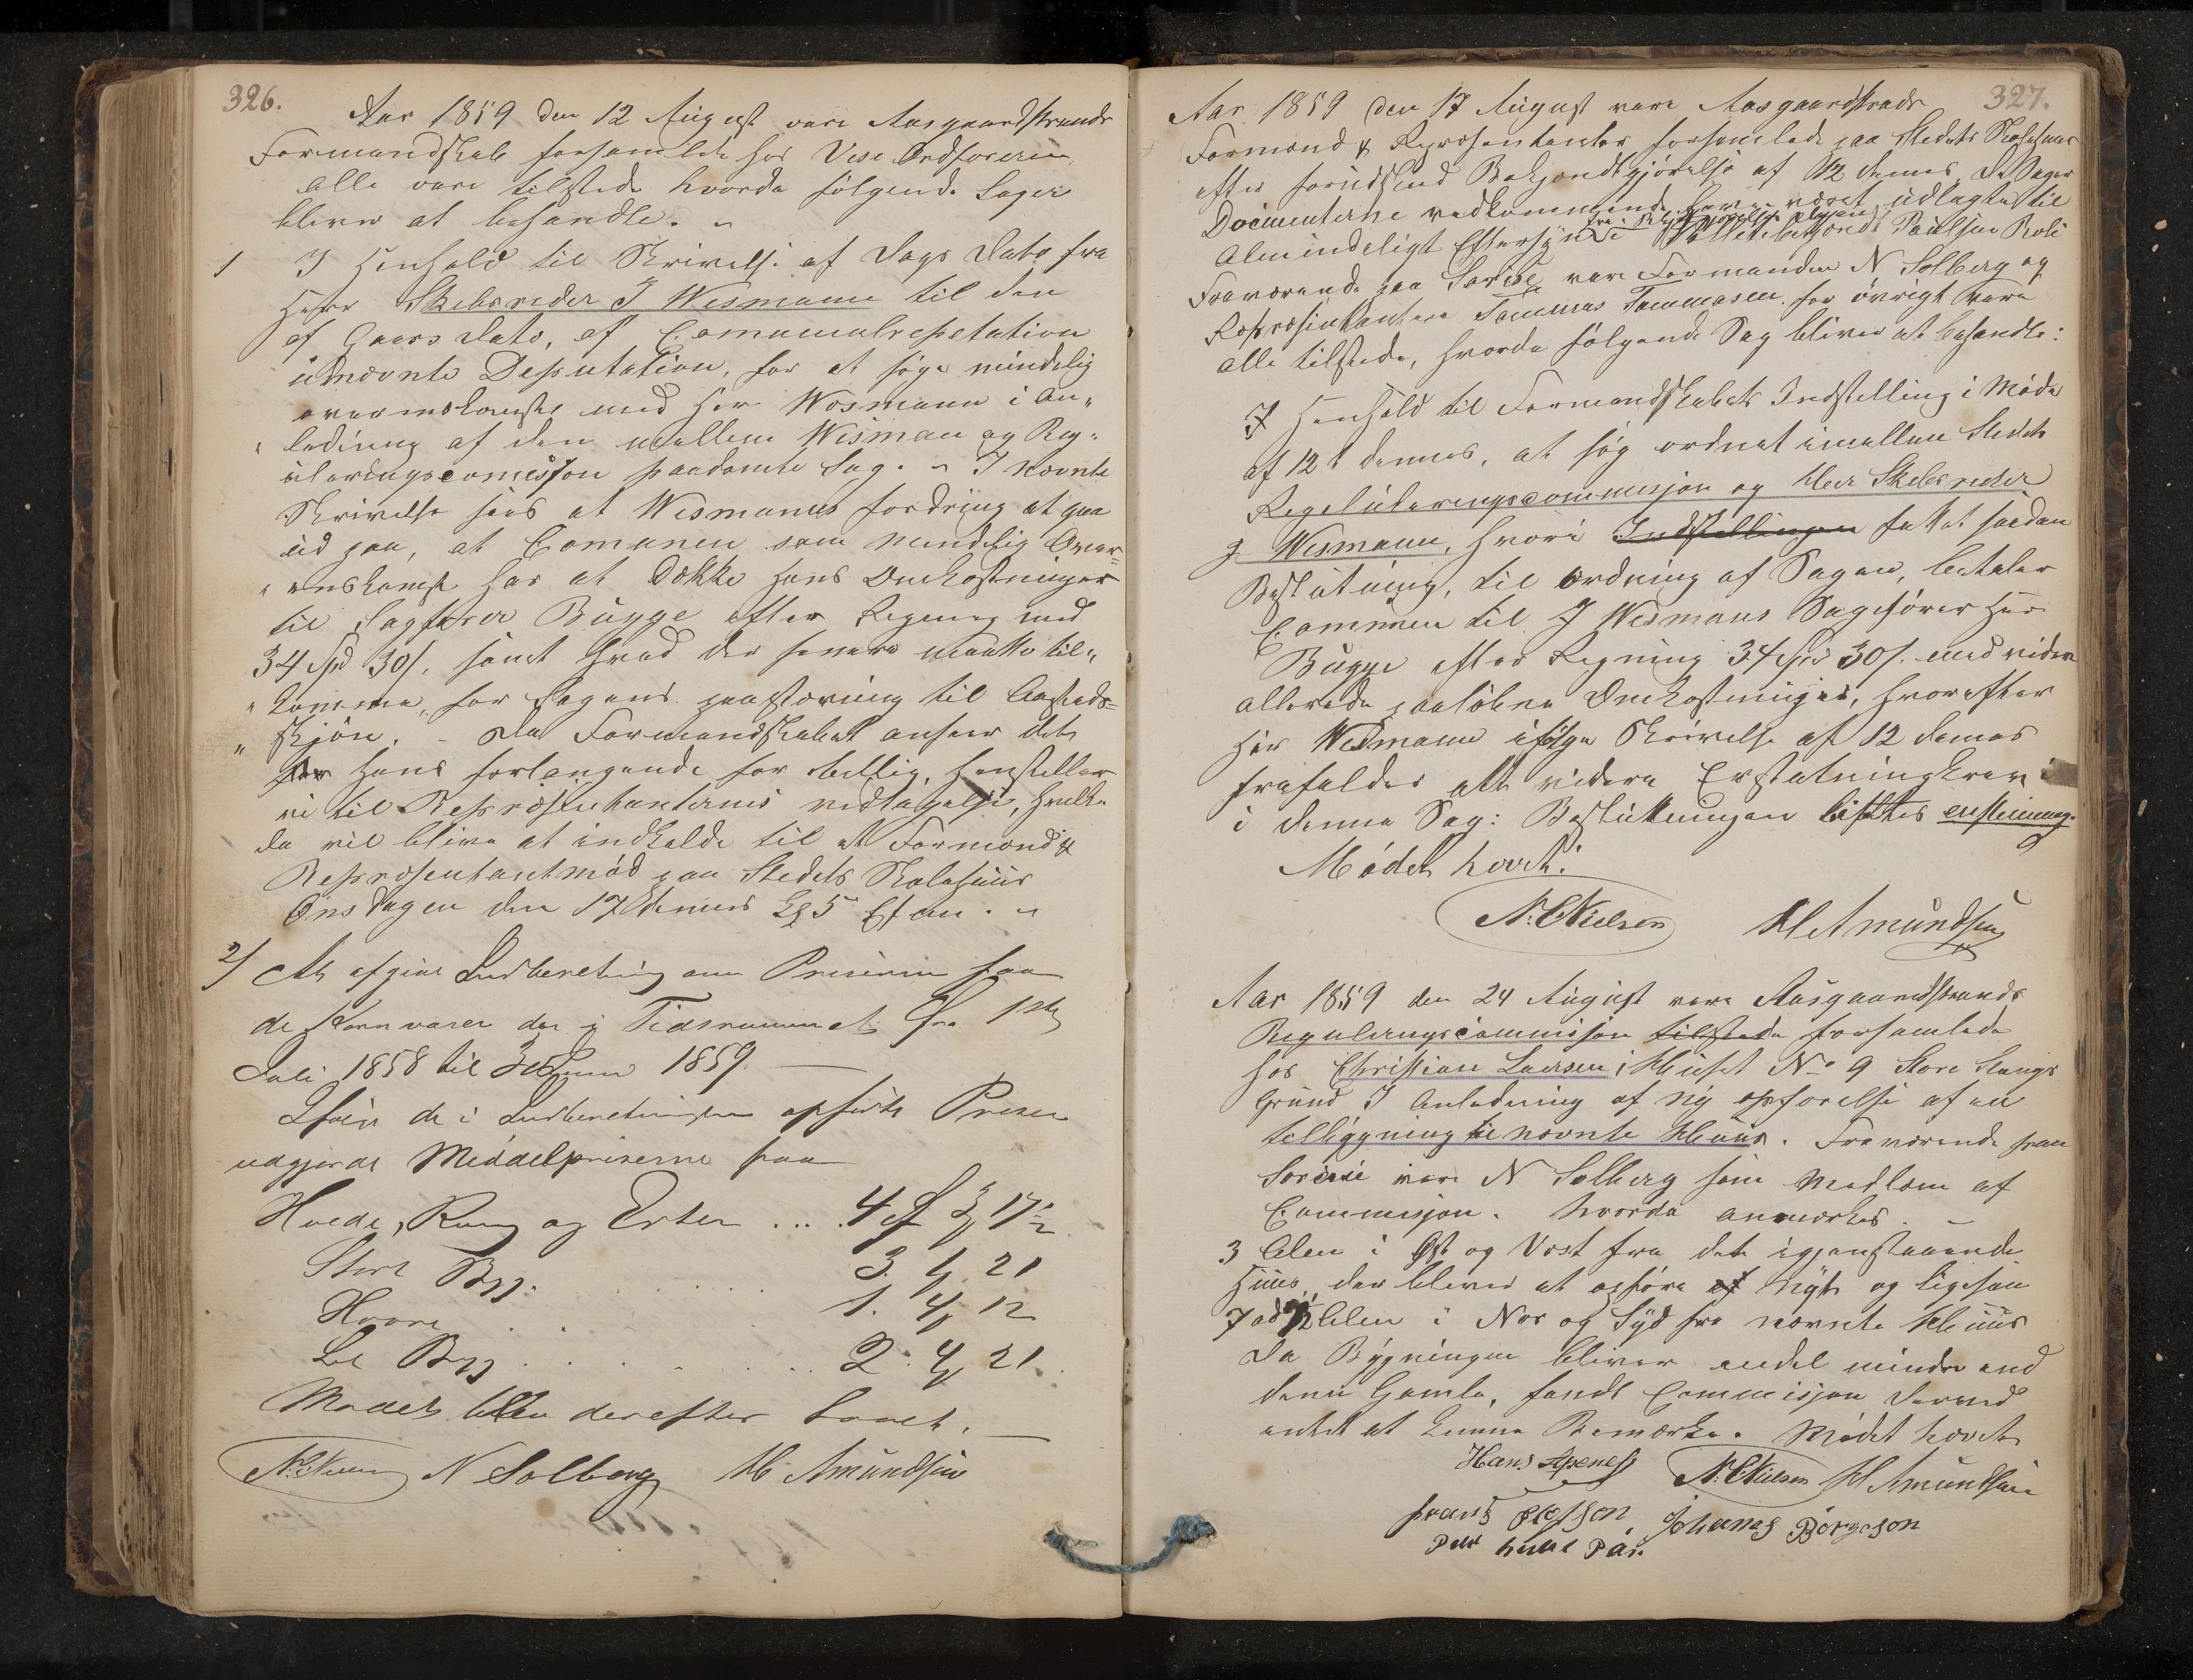 326.
Aar 1859 den 12 August vare Aasgaardstrands
Formandskab forsamlede hos Vise Ordføreren,
alle vare tilstede hvorda følgende Sager
bliver at behandle.
1 I Henhold til Skrivelse af Dags Dato fra
Herr Skibsreder J Wismann til den
af Gaars Dato, af
udnævnte Deputation, for at søge mindelig
overenskomst med Herr Wismann i An„
„ledning af den mellem Wisman og Reg„
uleringscomision paadømte Sag. I nævnte
Skrivelse sees at Wismanns fordring at gaa
ud paa, at Comunen som mindelig Over=
„enskomst har at Dække hans Omkostninger
til Sagfører Bugge efter Regning med
34 Spd 30/. samt hvad der senere maatte til„
„komme, for Sagens paastævning til Aasteds=
„Skjøn. Da Formandskabet anseer dets
hans forlangende for billig, henstiller
vi til Repræsentanternes vedtagelse, hvilke
da vil blive at indkalde til et Formænd &
Repræsentantmød paa Stedets Skolehuus
Onsdagen den 17 dennes Kl 5 Efm.
2/ At afgive Indberetning om Priserne paa
de Kornvarer der i Tidsrummet fra 1ste
Juli 1858 til 30 Juni 1859.
de i Indberetningen opførte Priser
udgjorde Middelpriserne paa
Hvede, Rug og Erter ... 4 3 17½
Stort Byg. 3. 4 21
Havre 1. 4 12
Byg 2. 4 21.
Mødet blev derefter hævet.
N. C. Nielsen N Solberg H Amundsen
327.
Aar 1859 den 17 August vare Aasgaardstrands
Formænd & Repræsentanter forsamlede paa Stedets Skolehuus
efter forudskeed Bekjendtgjørelse af 12 dennes. De Sagen
Documenterne vedkommende have været udlagte til
Almindeligt Eftersyn Paulsen Boli
Fraværende paa Søreise vare Formanden N Solberg og
Repræsentanten Tommas Tommasen. for øvrigt vare
alle tilstede, hvorda følgende Sag bliver at behandle:
I Henhold til Formandskabets Indstilling i Møde
af 12t dennes, at søg ordnet imellem Stedets
Regeluleringscommisjon og Herr Skibsreder
J Wismann, hvori Indstillingen fattet saadan
Beslutning, til Ordning af Sagen, betaler
Commnen til J Wismans Sagfører Her
Bugge efter Regning 34 Spd 30/. med videre
allerede paaløbne Omkostninger, hvorefter
Her Wismann ifølge Skrivelse af 12 dennes
frafalder alt videre Erstatningskrav i
i denne Sag: Beslutningen enstemmig.
Mødet hævet.
N. C. Nielsen H Amundsen
Aar 1859 den 24 August vare Aasgaardstrands
Reguleringscommisjon tilstede forsamlede
hos Christian Larsen i Huset No 9 Store Stangs
Grund I Anledning af ny opførelse af en
tilbygning til nævnte Huus. Fraværende paa
Søreise vare N Solberg som Medlem af
Commisjon. hvorda anmærkes. –
3 Alen i Øst og Vest fra det igjenstaaende
Huus, der bliver at opføre af Nyt og ligesaa
7 ad ½ Alen i Nor og Syd fra nævnte Huus
Da Bygningen bliver endel mindre end
denn Gamle, fandt Commisjon derved
intet at kunne Bemærke. Mødet hævet
Hans Apenes N. C. Nielsen H Amundsen
Frans Olefson Johannes Börgeson